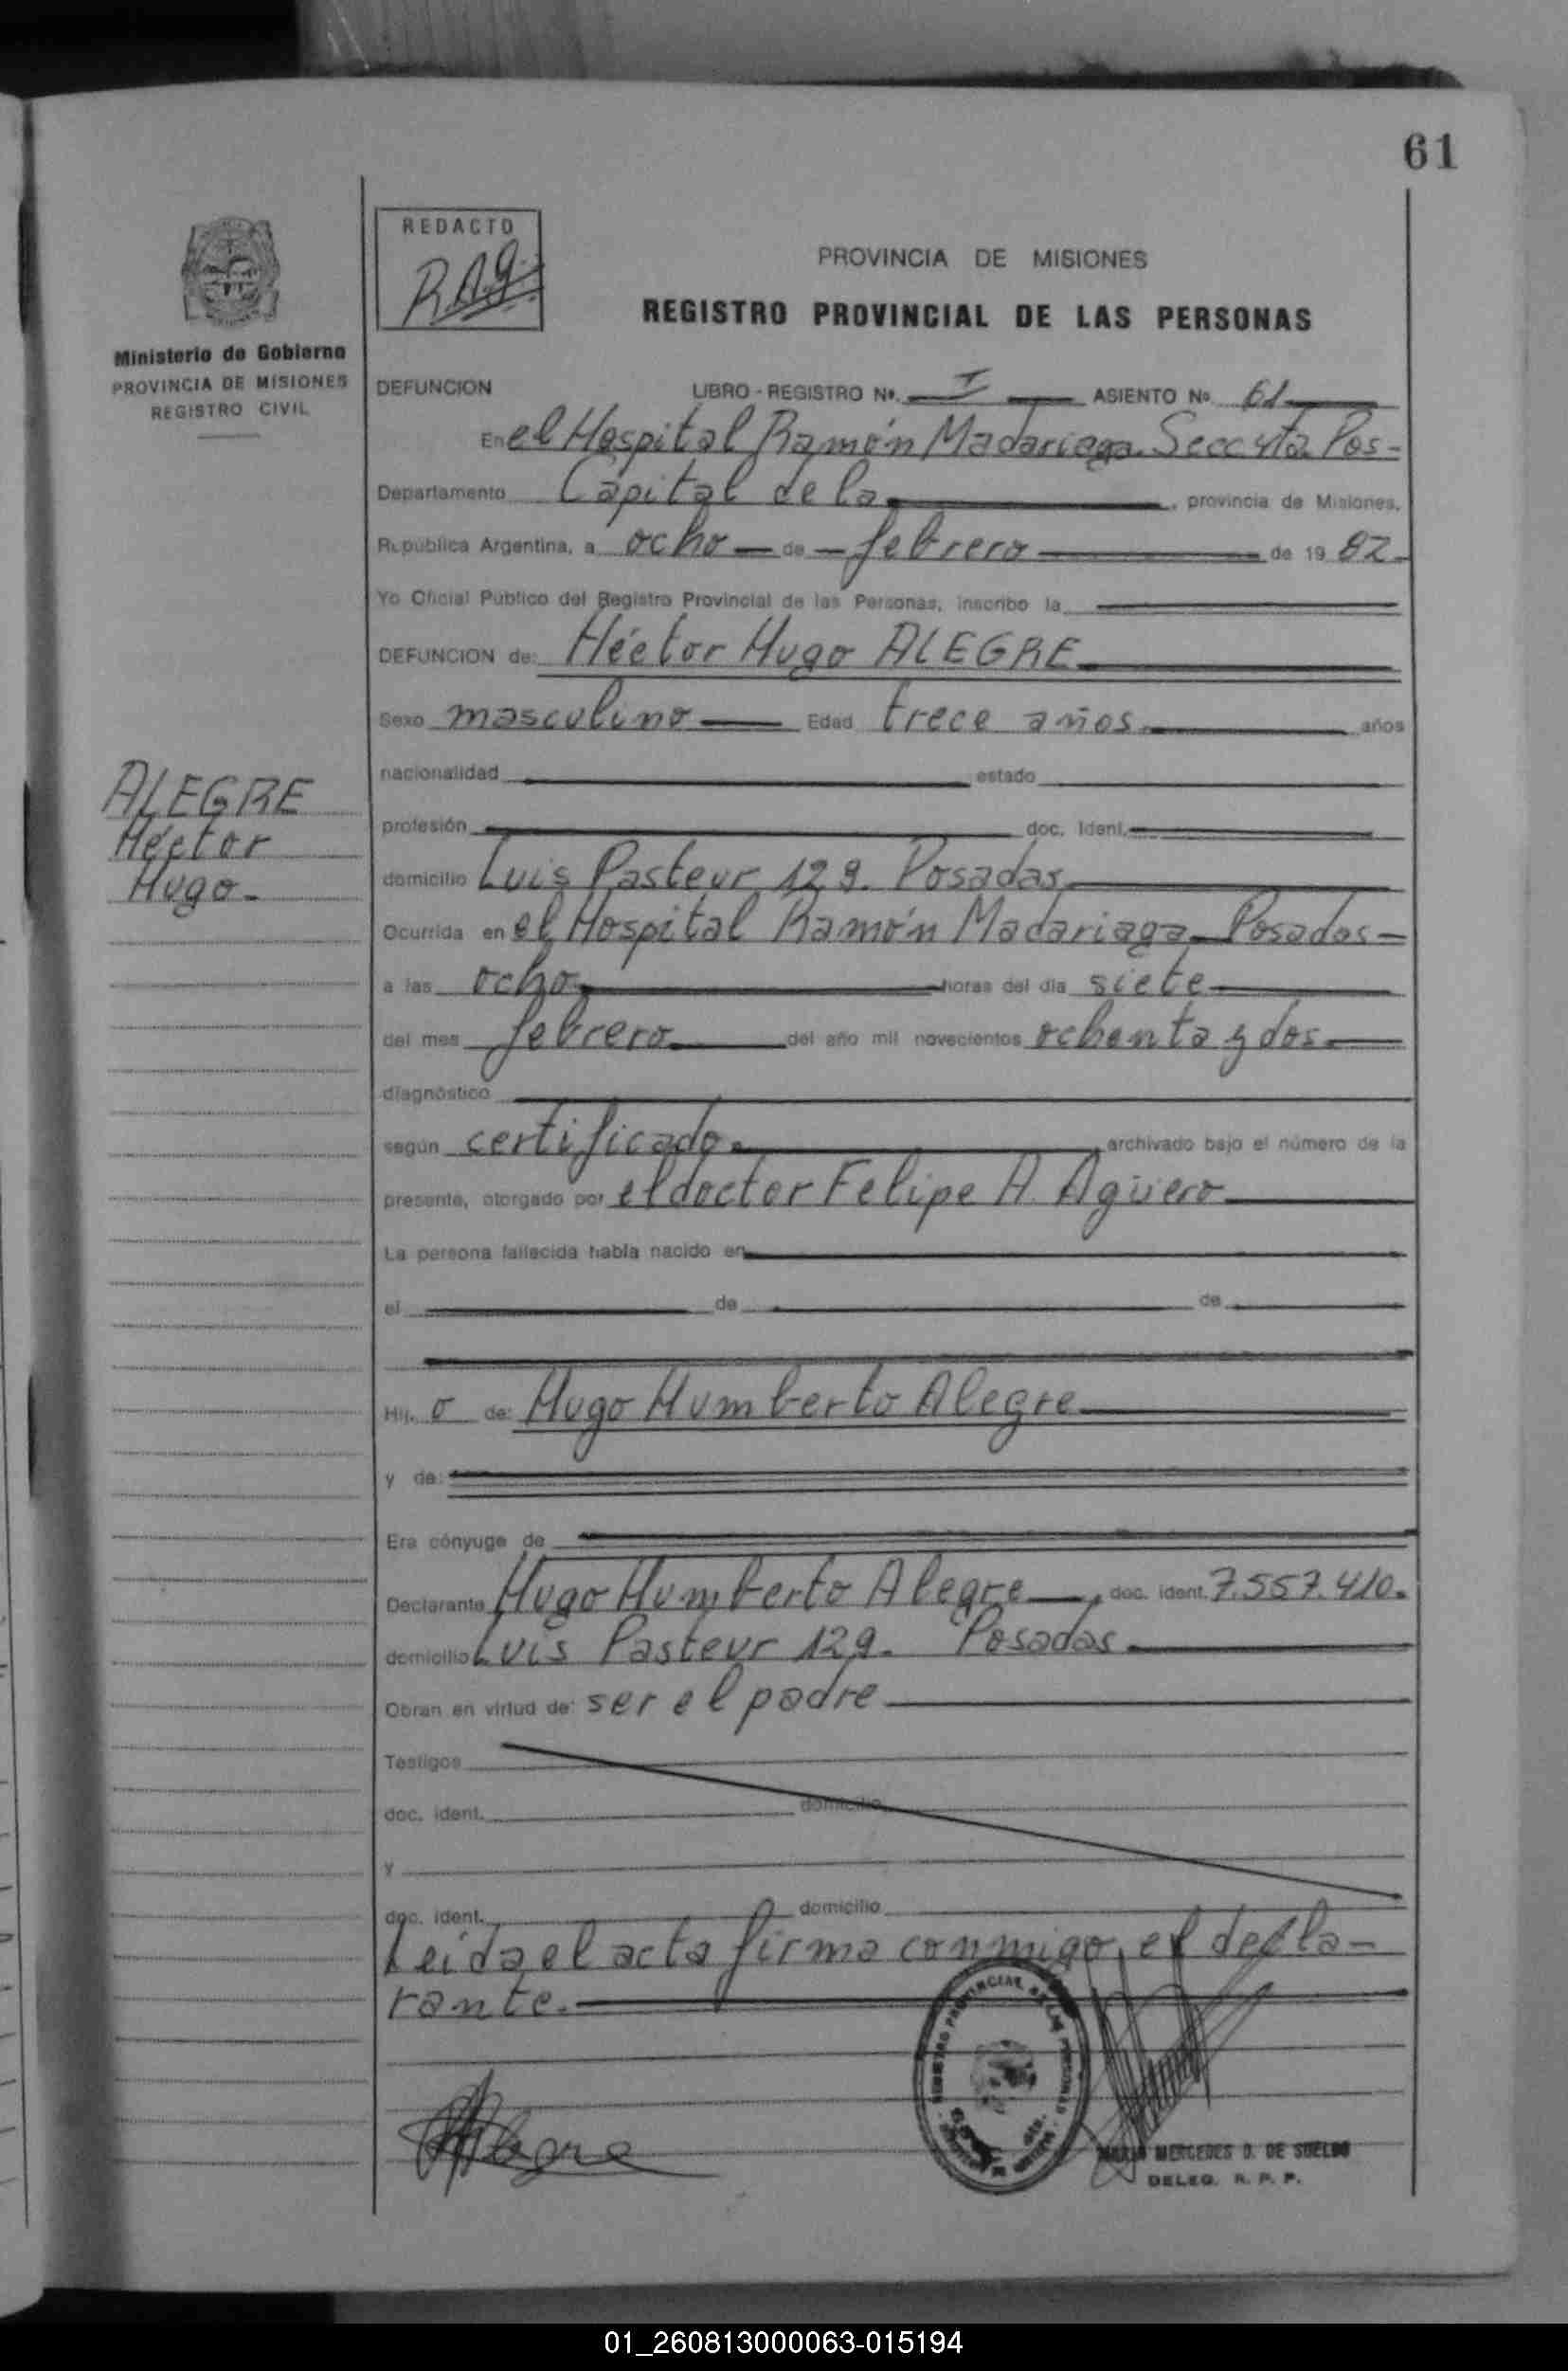 61
REDACTO
RAg.
PROVINCIA DE MISIONES
REGISTRO PROVINCIAL DE LAS PERSONAS
Ministerio de Gobierno
PROVINCIA DE MISIONES
REGISTRO CIVIL
DEFUNCION LIBRO - REGISTRO Nº. I ASIENTO Nº 61
En el Hospital Ramón Madariaga. Secc 4ta Pos-
Departamento Capital de la , provincia de Misiones,
República Argentina, a ocho de febrero de 19 82
Yo Oficial Público del Registro Provincial de las Personas, inscribo la
DEFUNCION de: Héctor Hugo ALEGRE
Sexo masculino Edad trece años años
nacionalidad estado
ALEGRE
Héctor
Hugo-
profesión doc. Ident.
domicilio Luis Pasteur 129. Posadas
Ocurrida en el Hospital Ramón Madariaga Posadas-
a las ocho horas del día siete
del mes febrero del año mil novecientos ochenta y dos
diagnóstico
según certificado archivado bajo el número de la
presente, otorgado por el doctor Felipe A. Agüero
La persona fallecida había nacido en
el de de
Hij o de: Hugo Humberto Alegre
y de:
Era cónyuge de
Declarante Hugo Humberto Alegre, doc. ident. 7.557.410.
domicilio Luis Pasteur 129. Posadas
Obran en virtud de: ser el padre
Testigos
doc. ident. domicilio
y
doc. ident. domicilio
Leida el acta firma conmigo, el decla-
rante.
Alegre
MERCEDES D. DE
DELEG. R. P. P.
01_260813000063-015194